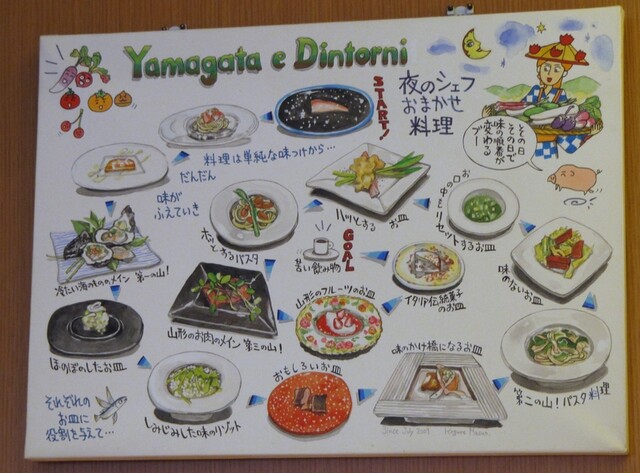 Yamagata e Dintorni
START!
夜のシェフ
おまかせ
料理
その日
その日で
味の順番が
変わる
ブー
料理は単純な味つけから…
だんだん
味が
ふえていき
冷たい海のもののメイン 第一の山!
ホッとするパスタ
ハッとする お皿
お口の中を
リセットするお皿
味のないお皿
GOAL
苦い飲み物
イタリア伝統菓子
のお皿
山形のフルーツのお皿
山形のお肉のメイン 第三の山!
ほのぼのしたお皿
しみじみした味のリゾット
おもしろいお皿
味のかけ橋になるお皿
第二の山!パスタ料理
それぞれの
お皿に
役割を与えて…
Since July